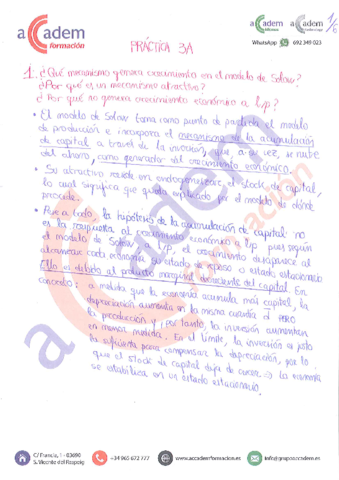 accadem formación
accadem
accadem
WhatsApp 692 349 023
1/6
PRÁCTICA 3A
1. ¿Qué mecanismo genera crecimiento en el modelo de Solow?
¿Por qué es un mecanismo atractivo?
¿Por qué no genera crecimiento económico a l/p?
• El modelo de Solow toma como punto de partida el modelo
de producción e incorpora el mecanismo de la acumulación
de capital a través de la inversión, que a su vez, se nutre
del ahorro, como generador del crecimiento económico.
• Su atractivo reside en endogeneizar el stock de capital,
lo cual significa que queda explicado por el modelo de dónde
procede.
• Pese a todo, la hipótesis de la acumulación de capital no
es la respuesta al crecimiento económico a l/p pues según
el modelo de Solow a l/p, el crecimiento desaparece al
alcanzar cada economía su estado de reposo o estado estacionario
Ello es debido al producto marginal decreciente del capital. En
concreto: a medida que la economía acumula más capital, la
depreciación aumenta en la misma cuantía PERO
la producción y, por tanto, la inversión aumentan
en menor medida. En el límite, la inversión es justo
la suficiente para compensar la depreciación, por lo
que el stock de capital deja de crecer => la economía
se estabiliza en un estado estacionario.
C/ Francia, 1 - 03690
S. Vicente del Raspeig
+34 965 672 777
www.accademformacion.es
info@grupoaccadem.es